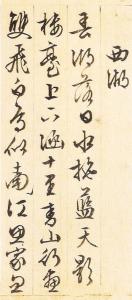 西湖
春湖落日水拖藍天影
樓臺上下涵十里青山行畫
雙飛白鳥似江南思家